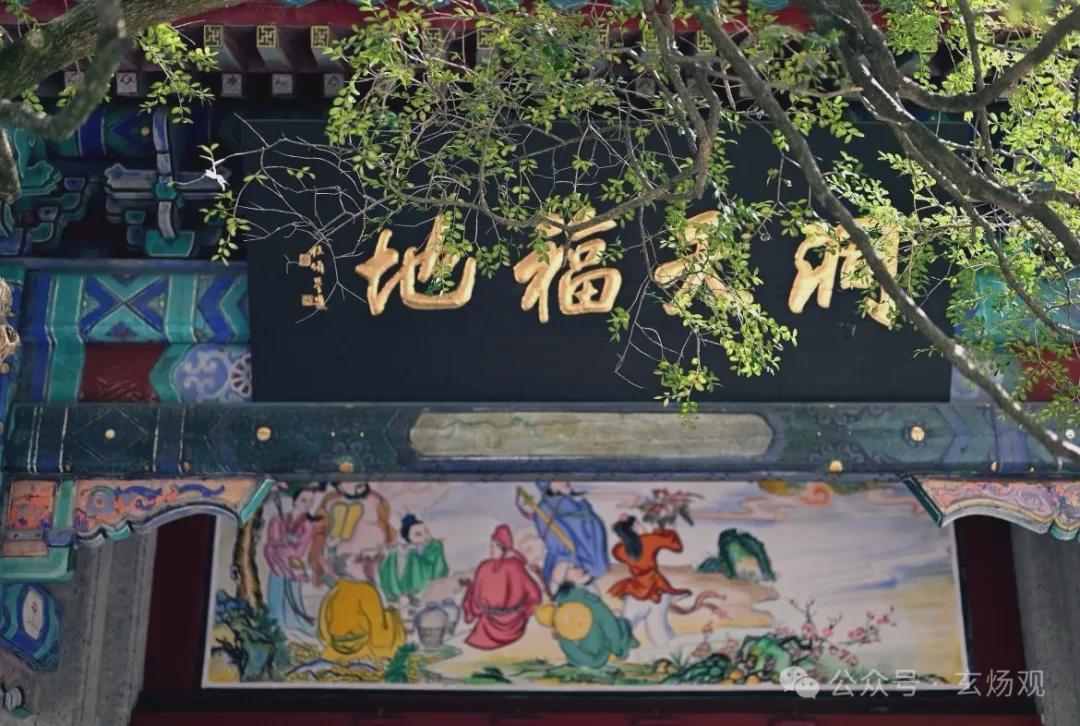 洞天福地
公众号 · 玄炀观